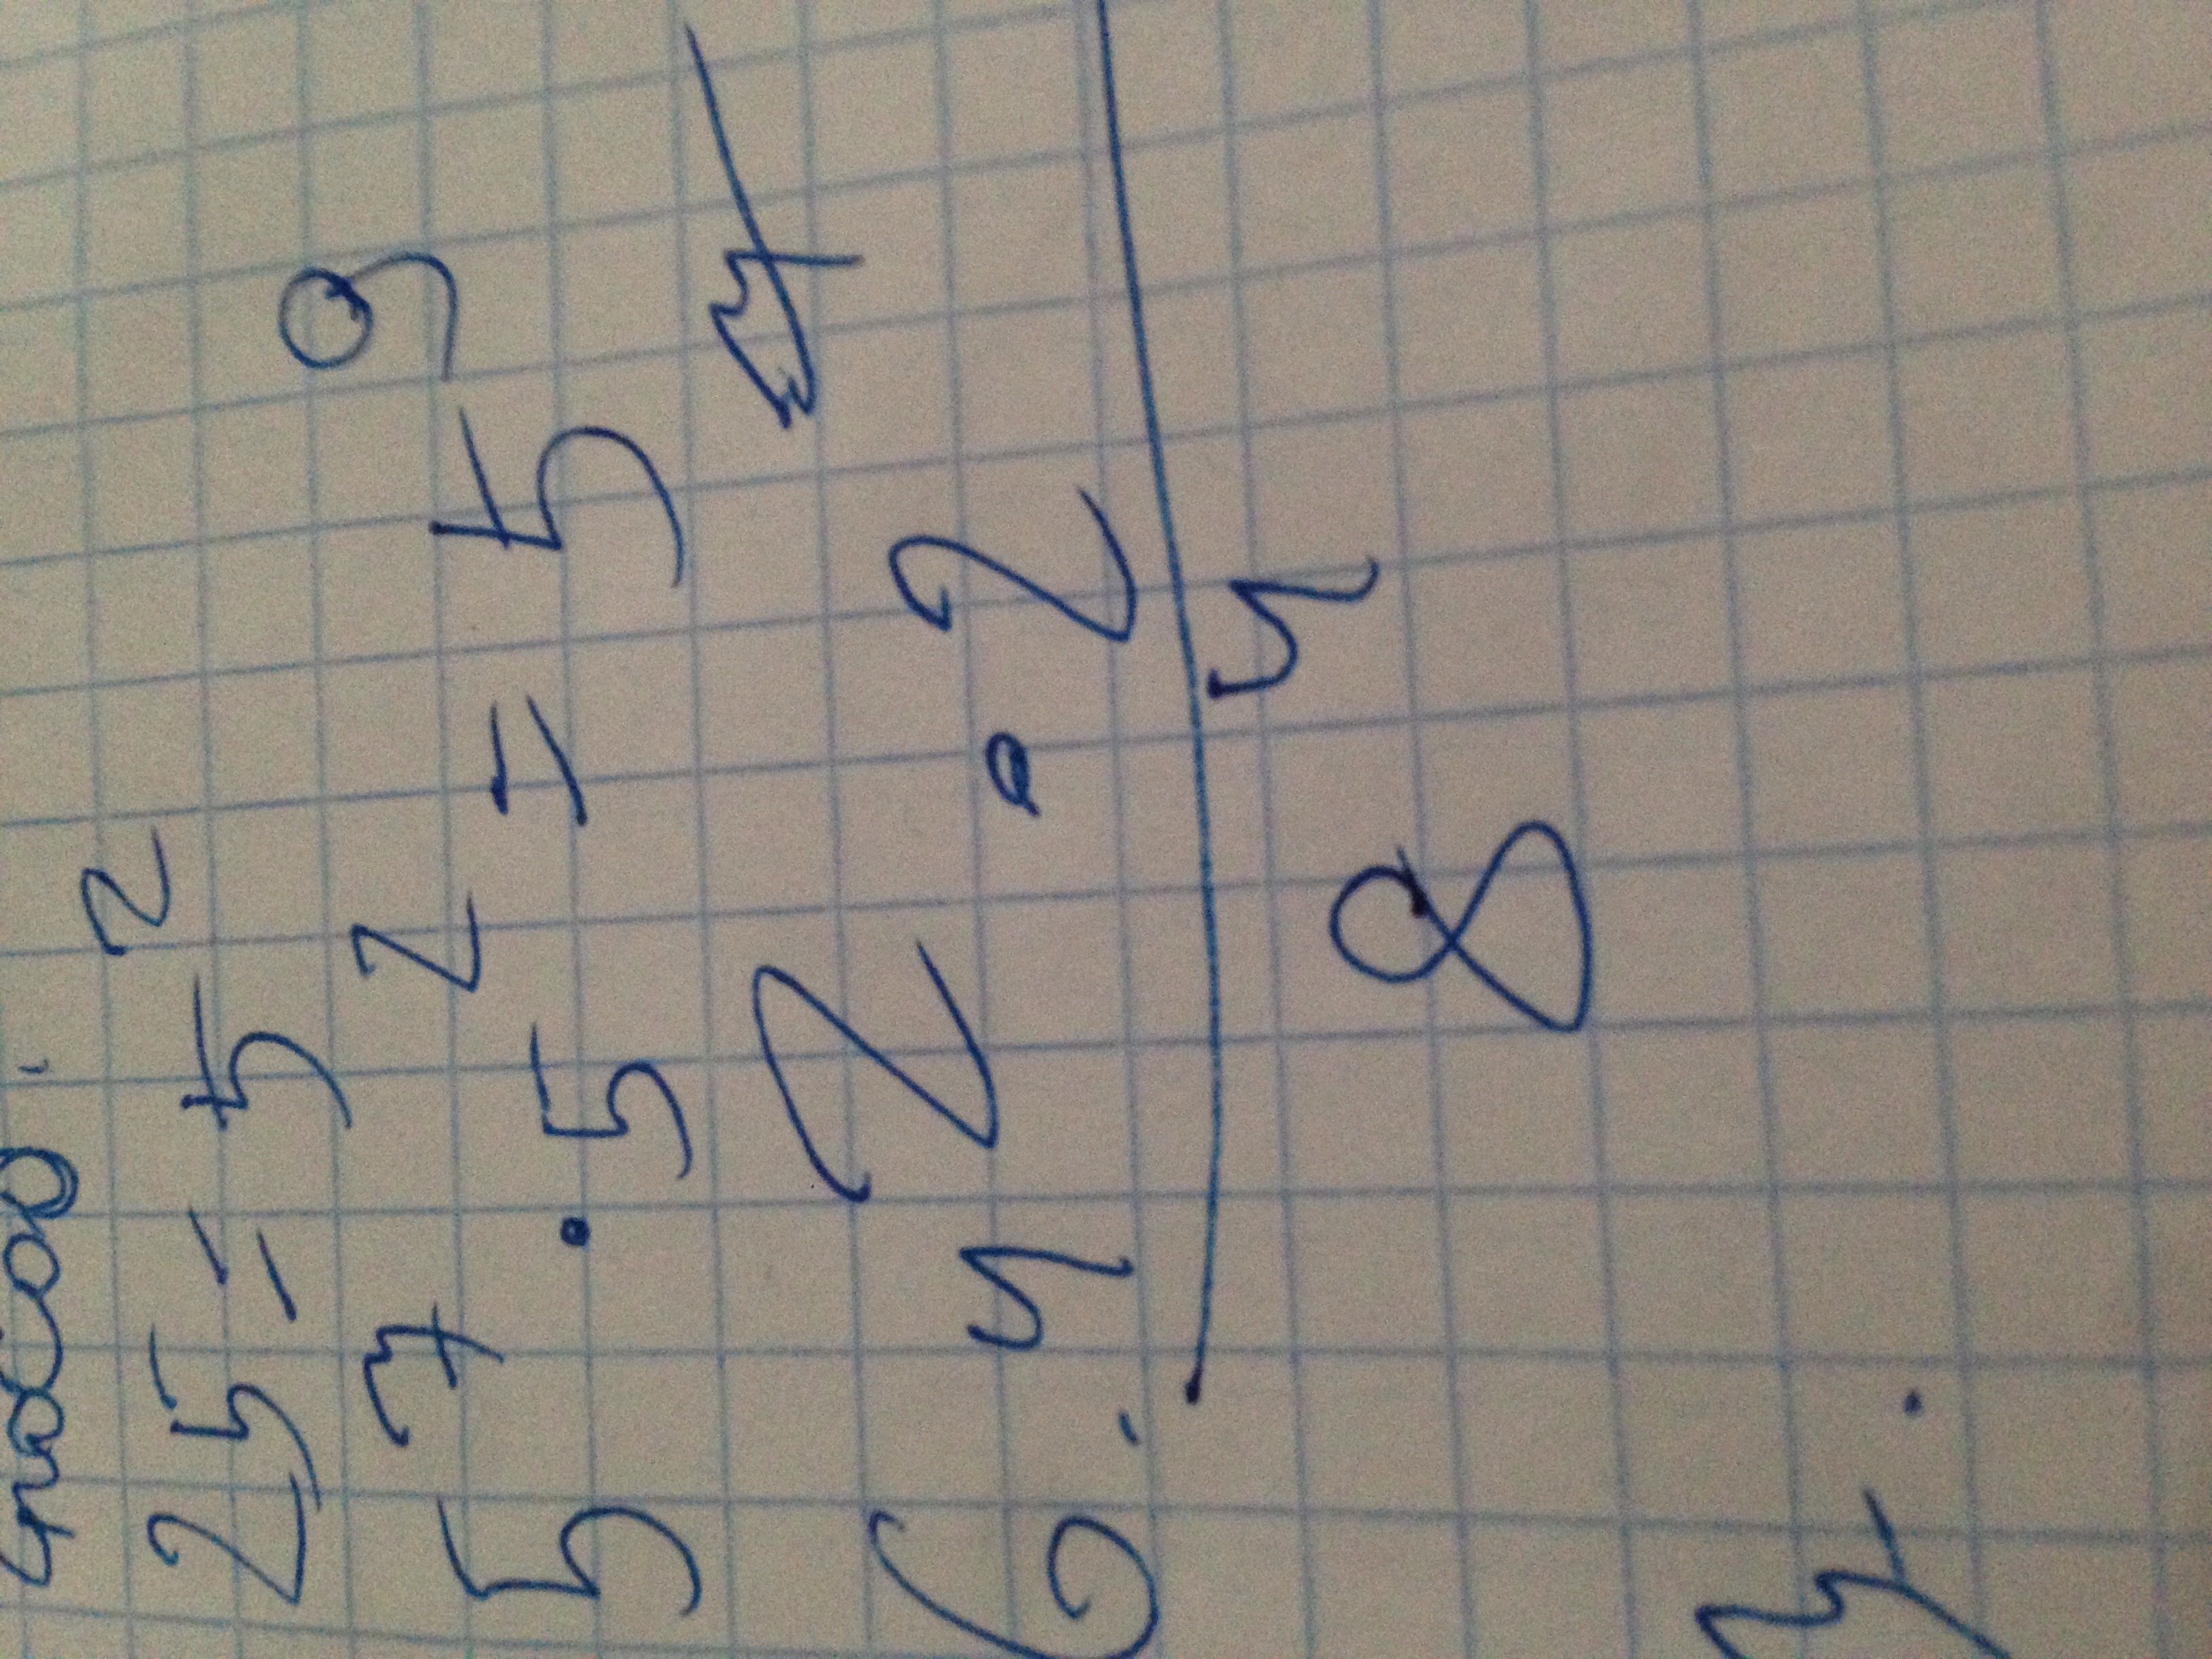 25 = 5²
5⁷ · 5² = 5⁹
6. 4² · 2⁷
8⁴
7.